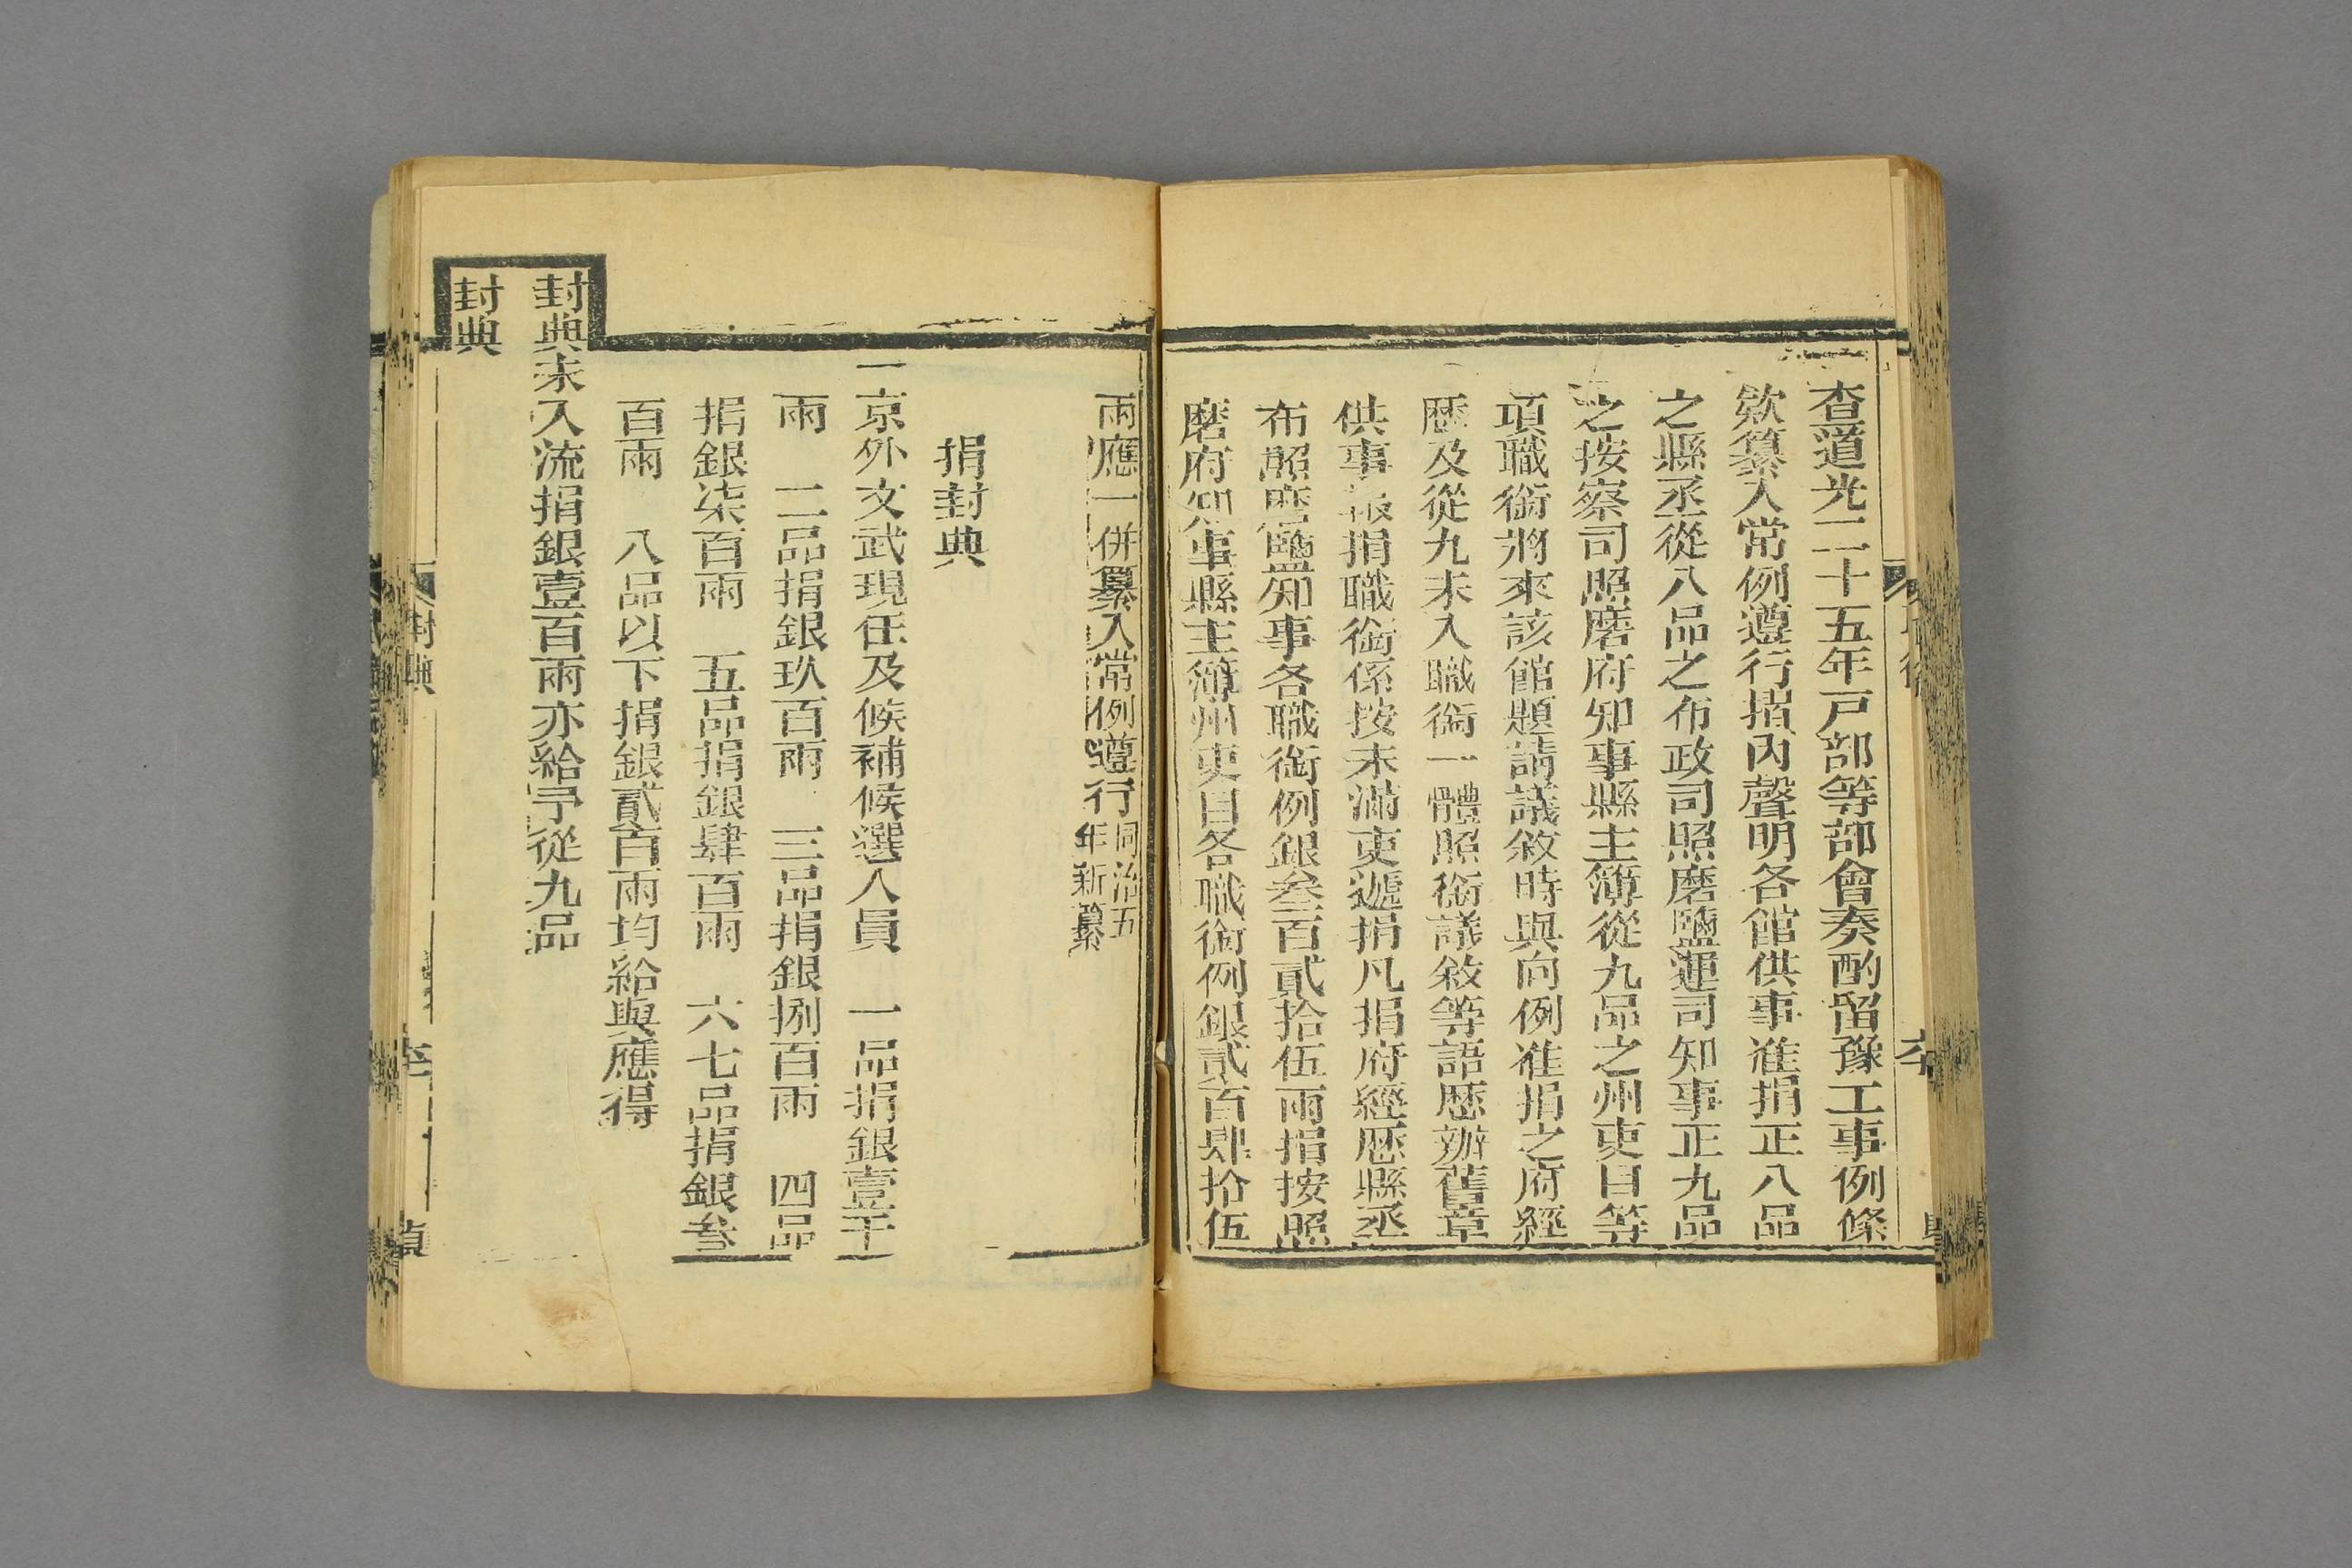 查道光二十五年戸部等部會奏酌留豫工事例條
欵纂入常例遵行摺內聲明各館供事准捐正八品
之縣丞從八品之布政司照磨鹽運司知事正九品
之按察司照磨府知事縣主簿從九品之州吏目等
項職銜將來該館題請議敘時與向例准捐之府經
歷及從九未入職銜一體照銜議敘等語歷辦舊章
供事報捐職銜係按未滿吏遞捐凡捐府經歷縣丞
布照磨鹽知事各職銜例銀叁百貳拾伍兩捐按照
磨府知事縣主簿州吏目各職銜例銀貳百肆拾伍
兩應一併纂入常例遵行同治五
年新纂
捐封典
一京外文武現任及候補候選人員　一品捐銀壹千
兩　二品捐銀玖百兩　三品捐銀捌百兩　四品
捐銀柒百兩　五品捐銀肆百兩　六七品捐銀叁
百兩　八品以下捐銀貳百兩均給與應得
封典未入流捐銀壹百兩亦給予從九品
封典
封典
貞